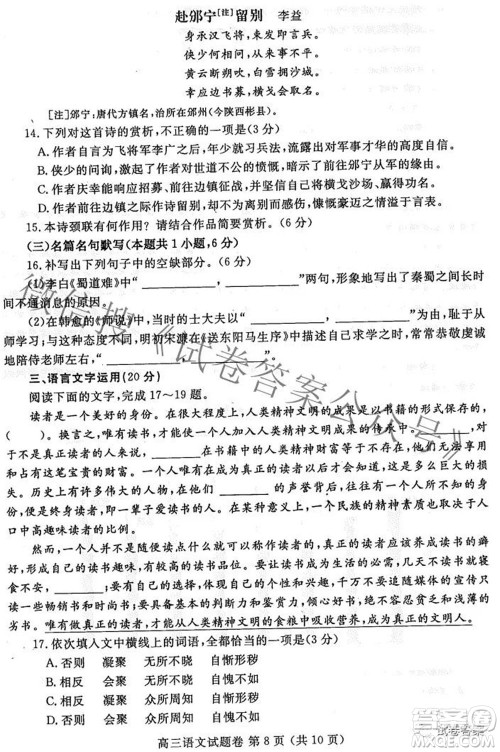 赴邠宁[注]留别 李益
身承汉飞将，束发即言兵。
侠少何相问，从来事不平。
黄云断朔吹，白雪拥沙城。
幸应边书募，横戈会取名。
[注]邠宁：唐代方镇名，治所在邠州（今陕西彬县）。
14.下列对这首诗的赏析，不正确的一项是（3分）
A.作者自言为飞将军李广之后，成年后从军，流露出对军事才华的高度自信。
B.侠少的询问，激起了作者对世道不公的愤慨，暗示了前往邠宁从军的缘由。
C.作者庆幸能响应招募，前往边镇入幕，表达了必将横戈沙场、赢得功名。
D.作者对前往边镇之际所作留别诗，境界开阔，情感慷慨豪迈之情溢于言表。
15.本诗颈联有何作用？请结合作品简要赏析。（6分）
（三）名篇名句默写（本题共1小题，6分）
16.补写出下列句子中的空缺部分。（6分）
（1）李白《蜀道难》中“ ， ”两句，形象地写出了秦蜀之间长时
间不通消息的原因。
（2）在韩愈的《师说》中，当时的士大夫以“ ， ”为由，耻于从
师学习；与这种态度不同，明初宋濂在《送东阳马生序》中描述自己求学之时，常恭敬虔诚
地陪侍老师左右，“ ， ”。
三、语言文字运用（20分）
阅读下面的文字，完成17～19题。
读书是一个美好的身份。历史上，人类精神文明的成果是以书籍的形式保存的，
（ ）。换言之，唯有读书，才能成为真正的读者，人类精神文明的成果才有了意义。 ，对
于不是真正的读者的人来说， 在书籍中的人类精神财富是不存在的，他们无法享用
和占有这笔宝贵的财富。因此，一个人唯有成为真正的读者，才知道他的损失有多
大。历史上有许多伟大的人物，在他们 的声誉背后，往往有一个人所不知
的身份，便是终身读者，即一辈子爱读书的人。在某种意义上，一个民族的精神素质取决于人
口中高趣味读者的比例。
然而，一个人并不是随便读点什么就可以称作读者的。真正的读者，应该有读书的癖
好，形成自己的读书趣味，养成自己的读书习惯。读书已经成为生活的基本需要，不读书就
食不安， 。同时，能够有选择地读书，拒绝平庸的书，
以便集中精力读好书。相反，一个人如果总是读坏书，就会受坏书影响，成为思想贫乏浅薄的
劣者。唯有做真正的读者，才能从人类精神文明的食粮中吸收营养，成为真正的文明人。
17.依次填入文中横线上的词语，全都恰当的一项是（3分）
A.否则 凝聚 无所不晓 自惭形秽
B.相反 会聚 无所不晓 自惭形秽
C.相反 凝聚 众所周知 自惭形秽
D.否则 会聚 众所周知 自惭形秽
高三语文试题卷 第8页（共10页）
微信搜《试卷答案公众号》
试卷答案